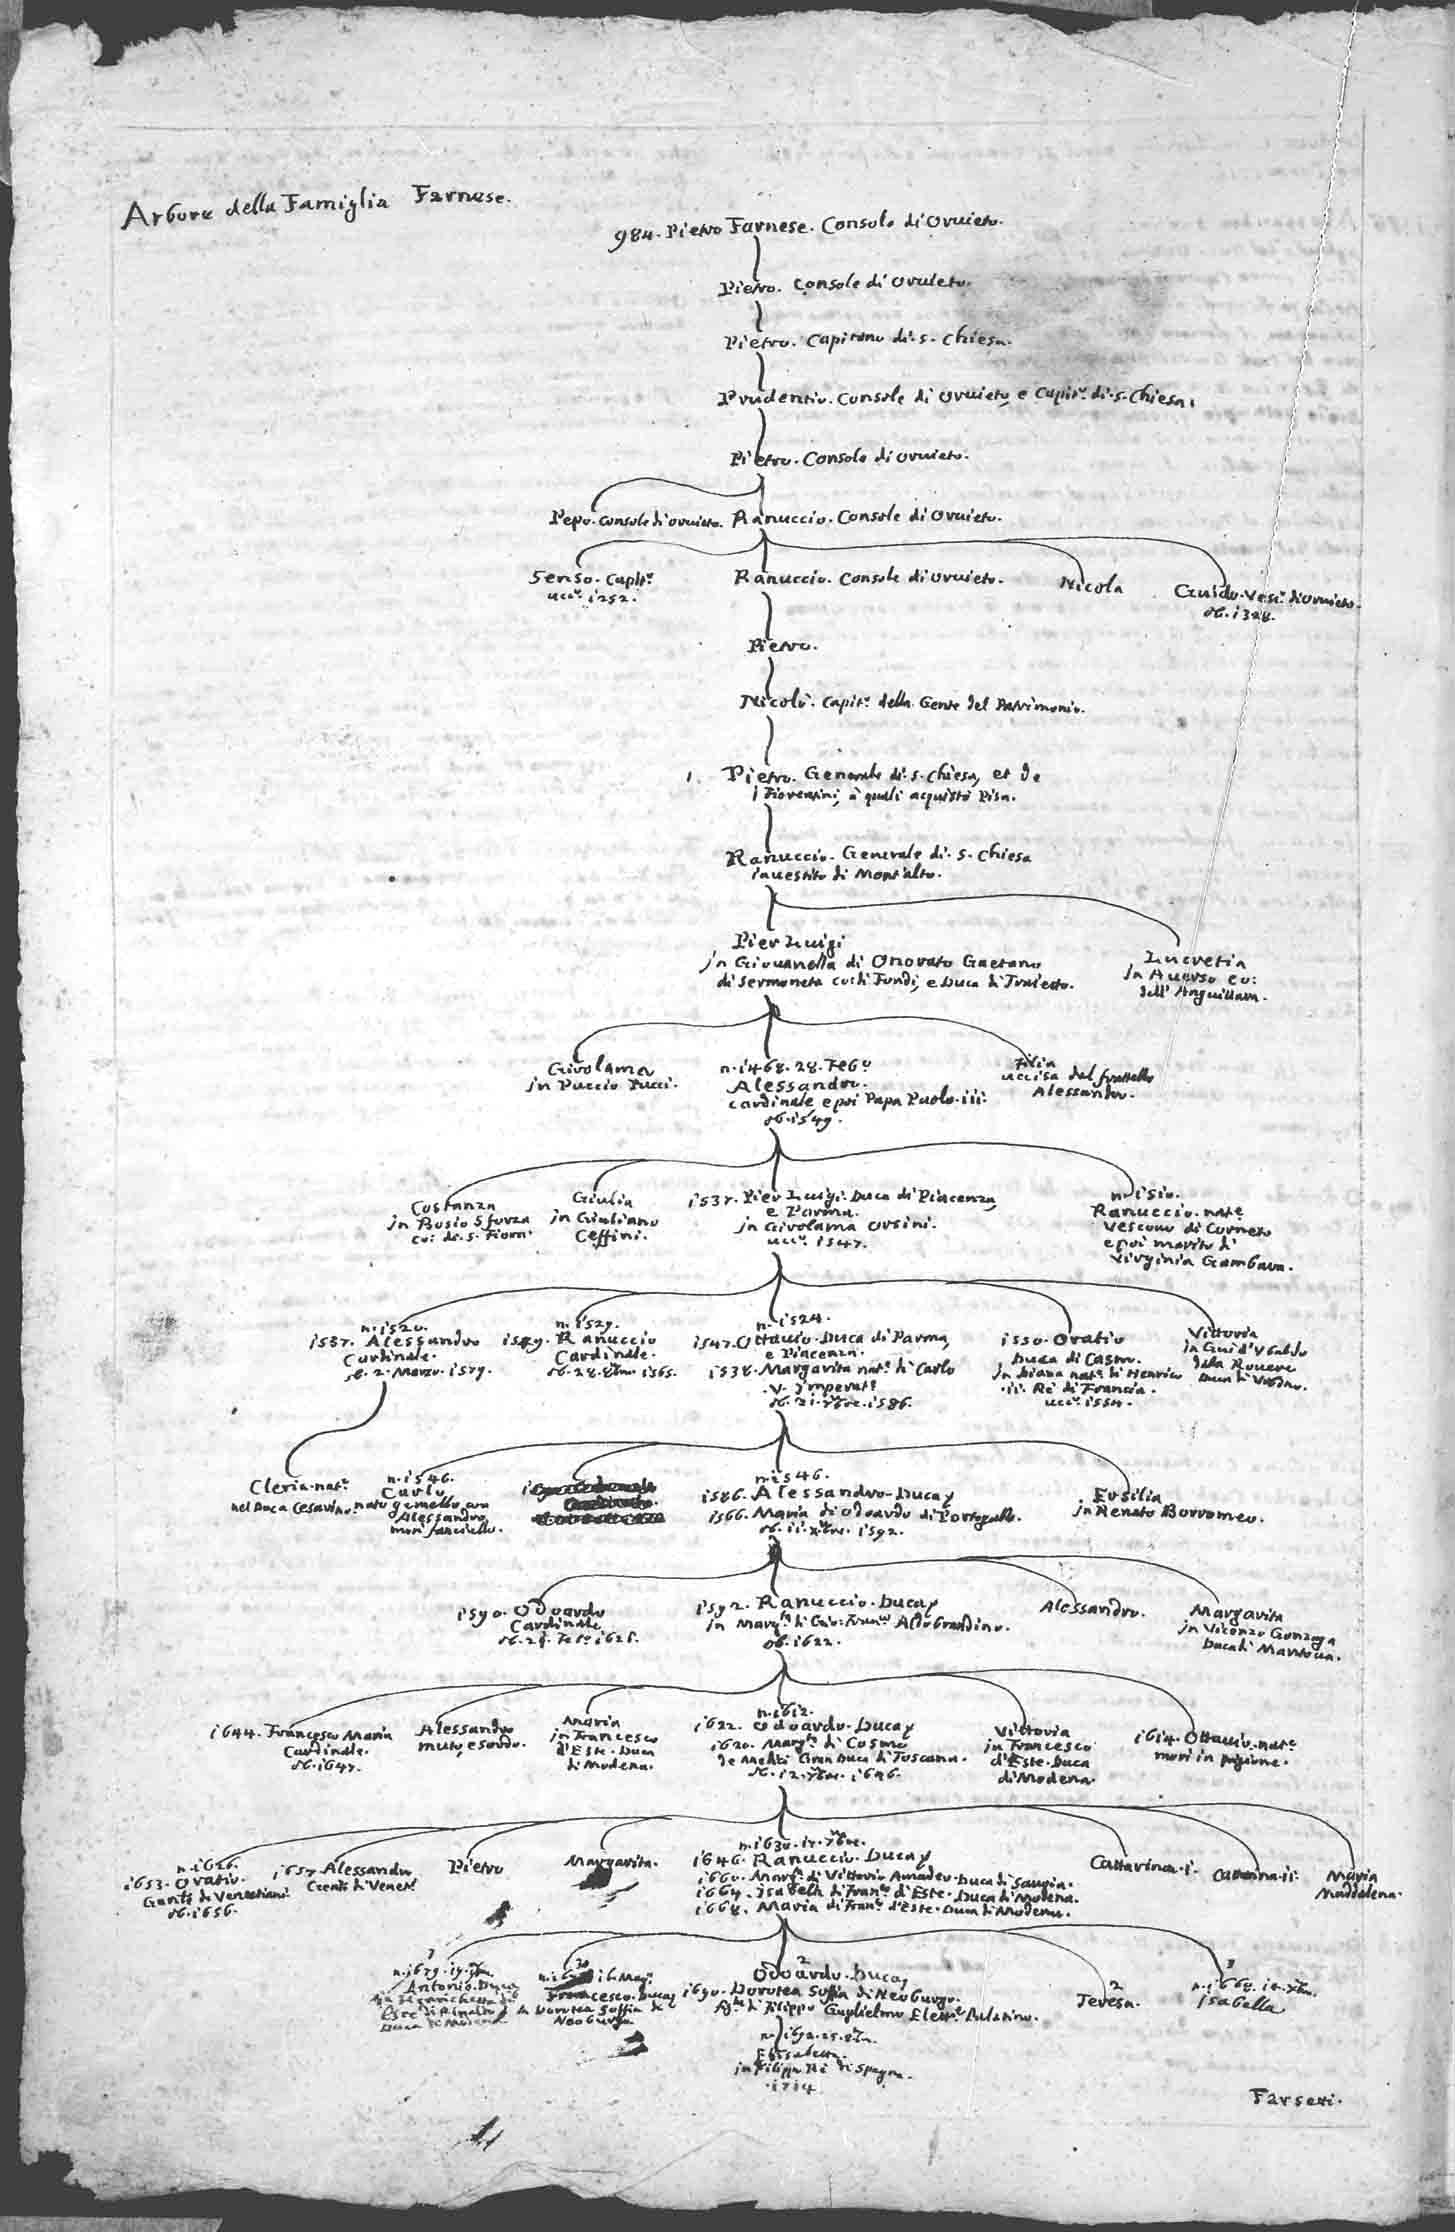 Arbore della Famiglia Farnese.
984. Pietro Farnese. Consolo di Orvieto.
Pietro. Console di Orvieto.
Pietro. Capitano di. S. Chiesa.
Prudentio. Console di Orvieto, e Capit.º di. S. Chiesa.
Pietro. Consolo di Orvieto.
Pepo. Console di Orvieto. Ranuccio. Console di Orvieto.
Senso. Capit.º
ucc.º 1252.
Ranuccio. Console di Orvieto.
Nicola
Guido. Vesc.º di Orvieto.
ob. 1328.
Pietro.
Nicolò. Capit.º della Gente del Patrimonio.
1. Pietro. Generale di. S. Chiesa, et de
i Fiorentini, à quali acquistò Pisa.
Ranuccio. Generale di. S. Chiesa
investito di Mont'alto.
Pier Luigi
in Giovanella di Onorato Gaetano
di Sermoneta co: di Fundi, e Duca di Traietto.
Lucretia
in Averso co:
dell' Anguillara.
Girolama
in Puccio Pucci.
n. 1468. 28. Feb.º
Alessandro.
Cardinale e poi Papa Paolo. iii.
ob. 1549.
uccisa dal fratello
Alessandro.
Costanza
in Bosio Sforza
co: di. S. Fiora
Giulia
in Giuliano
Ceffini.
1537. Pier Luigi. Duca di Piacenza,
e Parma.
in Girolama Orsini.
ucc.º 1547.
n. 1510.
Ranuccio. nat.e
Vescovo di Corneto
e poi marito di
Virginia Gambara.
n. 1520.
1537. Alessandro
Cardinale.
ob. 2. Marzo. 1579.
n. 1529.
1549. Ranuccio
Cardinale.
ob. 28. 8bre. 1565.
n. 1524.
1547. Ottavio. Duca di Parma,
e Piacenza.
1538. Margarita nat.e di Carlo
.V. Imperat.e
ob. 21. 7bre. 1586.
1550. Oratio
Duca di Castro.
in Diana nat.e di Henrico
.ii. Rè di Francia.
ucc.º 1554.
Vittoria
in Guid' Ubaldo
dela Rovere
Duca di Urbino.
Cleria. nat.e
nel Duca Cesarino.
n. 1546.
Carlo
nato gemello con
Alessandro
morì fanciullo.
n. 1546.
1586. Alessandro. Duca
1566. Maria di Odoardo di Portogallo.
ob. 11. Xbre. 1592.
Ersilia
in Renato Borromeo.
1590. Odoardo
Cardinale
1592. Ranuccio. Duca
in Marg.ta di Gio: Fran.co Aldobrandino.
ob. 1622.
Alessandro.
Margarita
in Vicenzo Gonzaga
Duca di Mantova.
1644. Francesco Maria
Cardinale.
ob. 1647.
Alessandro
muto, e sordo.
Maria
in Francesco
d'Este. Duca
di Modena.
n. 1612.
1622. Odoardo. Duca
1620. Marg.ta di Cosmo
de Medici Gran Duca di Toscana.
ob. 12. 7bre. 1646.
Vittoria
in Francesco
d'Este. Duca
di Modena.
1614. Ottavio. nat.e
morì in prigione.
n. 1636.
1653. Oratio.
Gen.le di Venetiani.
ob. 1656.
1657. Alessandro
Gen.le di Venet.i
Pietro
Margarita.
n. 1630. 17. 7bre.
1646. Ranuccio. Duca
1660. Marg.ta di Vittorio Amadeo. Duca di Savoia.
1664. Isabella di Fran.co d'Este. Duca di Modena.
1668. Maria di Fran.co d'Este. Duca di Modena.
Cattarina. i.
Cattarina. ii.
Maria
Maddalena.
3
Antonio. Duca
Francesco. Duca
in Dorotea Soffia di
Neoburgo
2
Odoardo. Duca
1690. Dorotea Soffia di Neoburgo.
fig.la di Filippo Guglielmo Elett.e Palatino.
2
Teresa.
Isabella
n. 1692. 25. 8bre.
Elisabetta.
in Filippo Rè di Spagna.
.1714
Farseri.